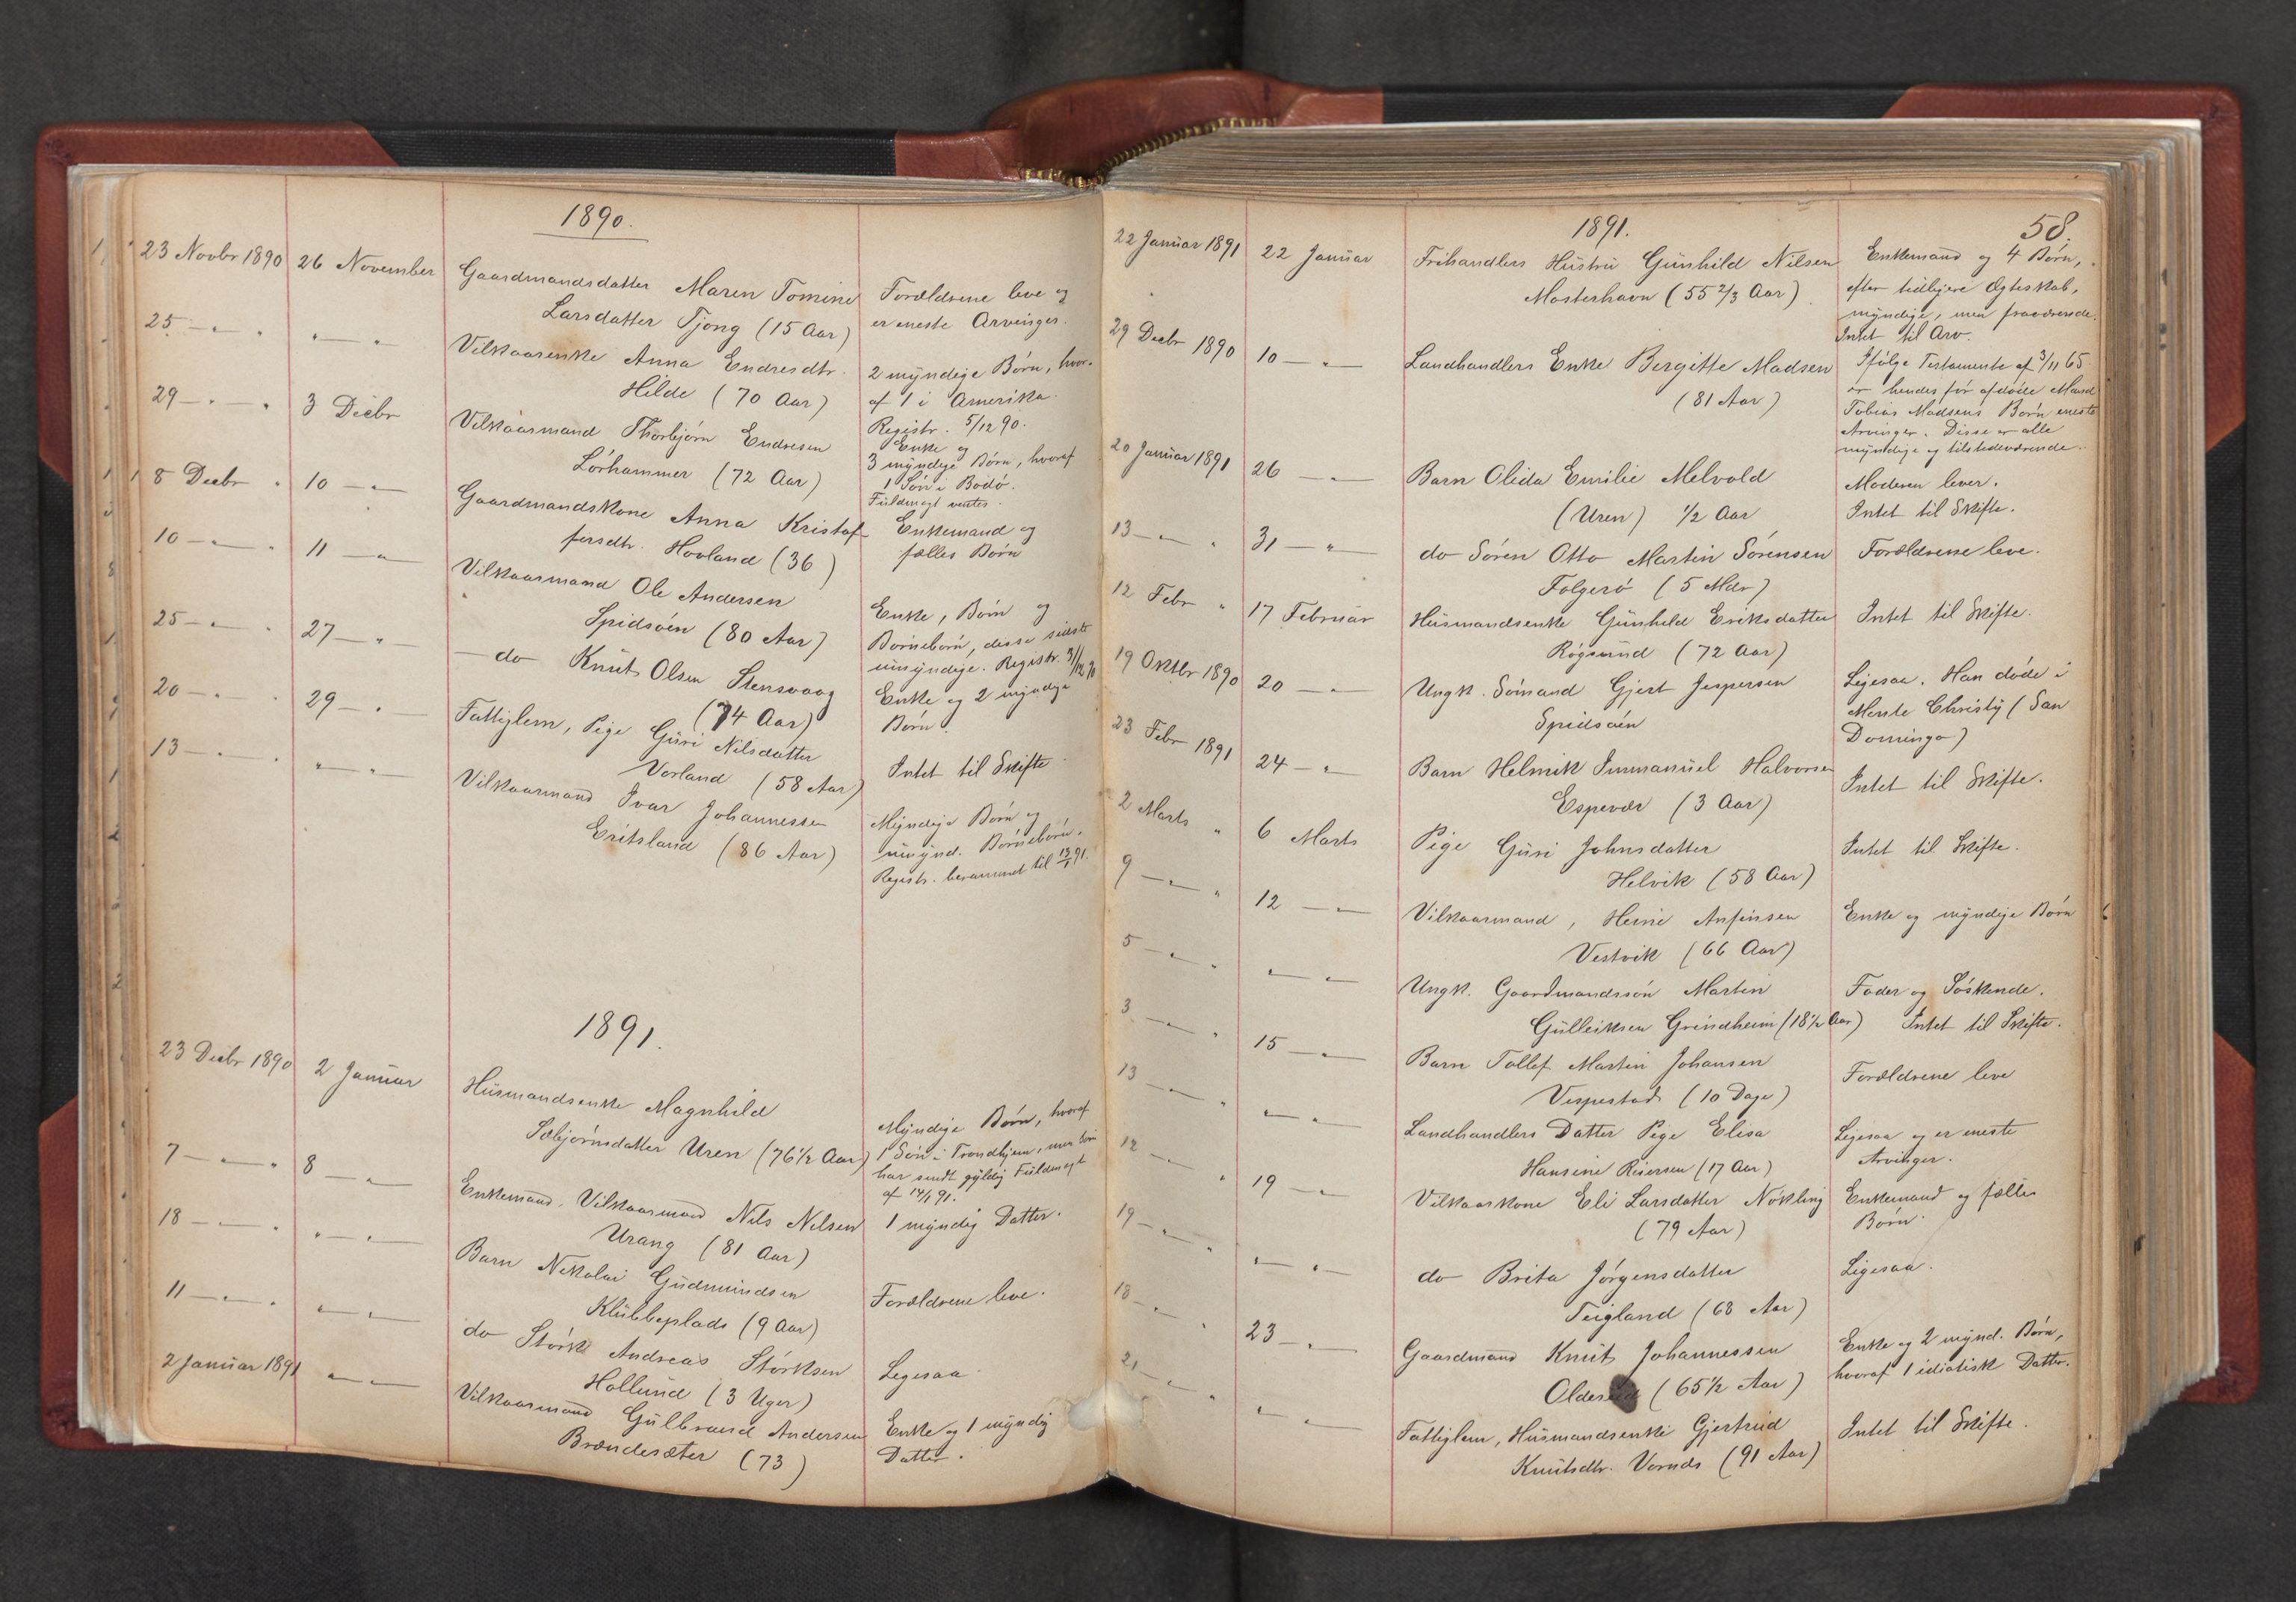 1890.
23 Novbr 1890 26 November Gaardmandsdatter Maren Tomine Forældrene leve og
Larsdatter Tjong (15 Aar) er eneste Arvinger.
25 — " — " " — " Vilkaarsenke Anna Endresdtr. 2 myndige Børn, hvor-
Hilde (70 Aar) af 1 i Amerika.
Registr. 5/12 90.
29 — " — " 3 Decbr Vilkaarmand Thorbjørn Endresen Enke og
Lørhammer (72 Aar) 3 myndige Børn, hvoraf
1 Søn i Bodø.
Fuldmagt ventes.
8 Decbr " 10 — " — Gaardmandskone Anna Kristof- Enkemand og
fersdtr. Hovland (36) fælles Børn
10 — " — " 11 — " — Vilkaarmand Ole Andersen Enke, Børn og
Spidsøen (80 Aar) Børnebørn, disse sidste
umyndige. Registr. 31/12 90
25 — " — " 27 — " — do Knut Olsen Stensvaag Enke og 2 myndige
(74 Aar) Børn.
20 — " — " 29 — " — Fattiglem, Pige Guri Nilsdatter Intet til Skifte
Vorland (58 Aar)
13 — " — " " — " — Vilkaarmand Ivar Johannessen Myndige Børn og
Eritsland (86 Aar) umynd. Børnebørn.
Registr. berammet til 13/1 91.
1891.
23 Decbr 1890 2 Januar Husmandsenke Magnhild Myndige Børn, hvoraf
Sæbjørnsdatter Uren (76 1/2 Aar) 1 Søn i Trondhjem, men
har sendt gyldig Fuldmagt
af 14/1 91.
7 — " — " 8 — " — Enkemand, Vilkaarmand Nils Nilsen 1 myndig Datter.
Urang (81 Aar)
18 — " — " " — " — Barn Nikolai Gudmundsen Forældrene leve.
Klubbeplads (9 Aar)
11 — " — " " — " — do Størk Andreas Størksen Ligesaa
Hollund (3 Uger)
2 Januar 1891 " — " — Vilkaarmand Gulbrand Andersen Enke og 1 myndig
Brandesæter (73) Datter.
1891. 58.
22 Januar 1891 22 Januar Frihandlers Hustru Gunhild Nilsen Enkemand og 4 Børn,
Mosterhavn (55 2/3 Aar) efter tidligere Ægteskab,
myndige, men fraværende.
Intet til Arv.
29 Decbr 1890 10 — " — Landhandlers Enke Bergitte Madsen Ifølge Testamente af 3/11 65
(81 Aar) er hendes før afdøde Mand
Tobias Madsens Børn eneste
Arvinger. Disse er alle
myndige og tilstedeværende.
20 Januar 1891 26 — " — Barn Olida Emilie Melvold Moderen lever.
(Uren) 1/2 Aar Intet til Skifte.
13 — " — " 31 — " — do Søren Otto Martin Sørensen Forældrene leve.
Folgerø (5 Mdr)
12 Febr " 17 Februar Husmandsenke Gunhild Eriksdatter Intet til Skifte.
Røgsund (72 Aar)
19 Oktbr 1890 20 — " — Ungk. Sømand Gjert Jespersen Ligesaa. Han døde i
Spidsøen Monte Christy (San
Domingo)
23 Febr 1891 24 — " — Barn Helmik Immanuel Halvorsen Intet til Skifte.
Espevær (3 Aar)
2 Marts " 6 Marts Pige Guri Johnsdatter Intet til Skifte.
Helvik (58 Aar)
9 — " — " 12 — " — Vilkaarmand, Heine Anfinsen Enke og myndige Børn
Vestvik (66 Aar)
5 — " — " " — " — Ungk. Gaardmandssøn Martin Fader og Søskende.
Gulleiksen Grindheim (18 1/2 Aar) Intet til Skifte.
3 — " — " 15 — " — Barn Tollef Martin Johansen Forældrene leve
Vespestad (10 Dage)
13 — " — " " — " — Landhandlers Datter Pige Elisa Ligesaa og er eneste
Hansine Riiersen (17 Aar) Arvinger.
12 — " — " 19 — " — Vilkaarskone Eli Larsdatter Nøkling Enkemand og fælles
(79 Aar) Børn.
19 — " — " " — " — do Brita Jørgensdatter Ligesaa.
Teigland (68 Aar)
18 — " — " 23 — " — Gaardmand Knut Johannessen Enke og 2 mynd. Børn,
(65 1/2 Aar) hvoraf 1 idiotisk Datter.
21 — " — " " — " — Fattiglem, Husmandsenke Gjertrud Intet til Skifte.
Knutsdtr. Vornds (91 Aar)